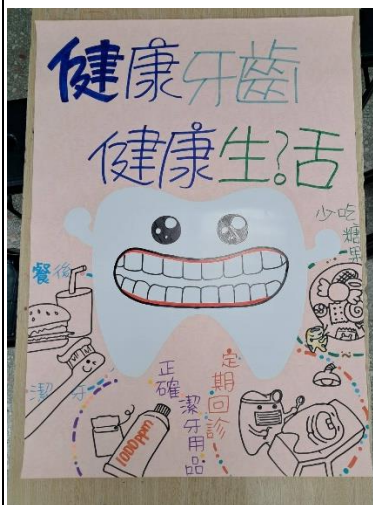 健康牙齒
健康生活
少吃糖果
餐後
潔牙
正確
潔牙用品
定期回診
1000ppm